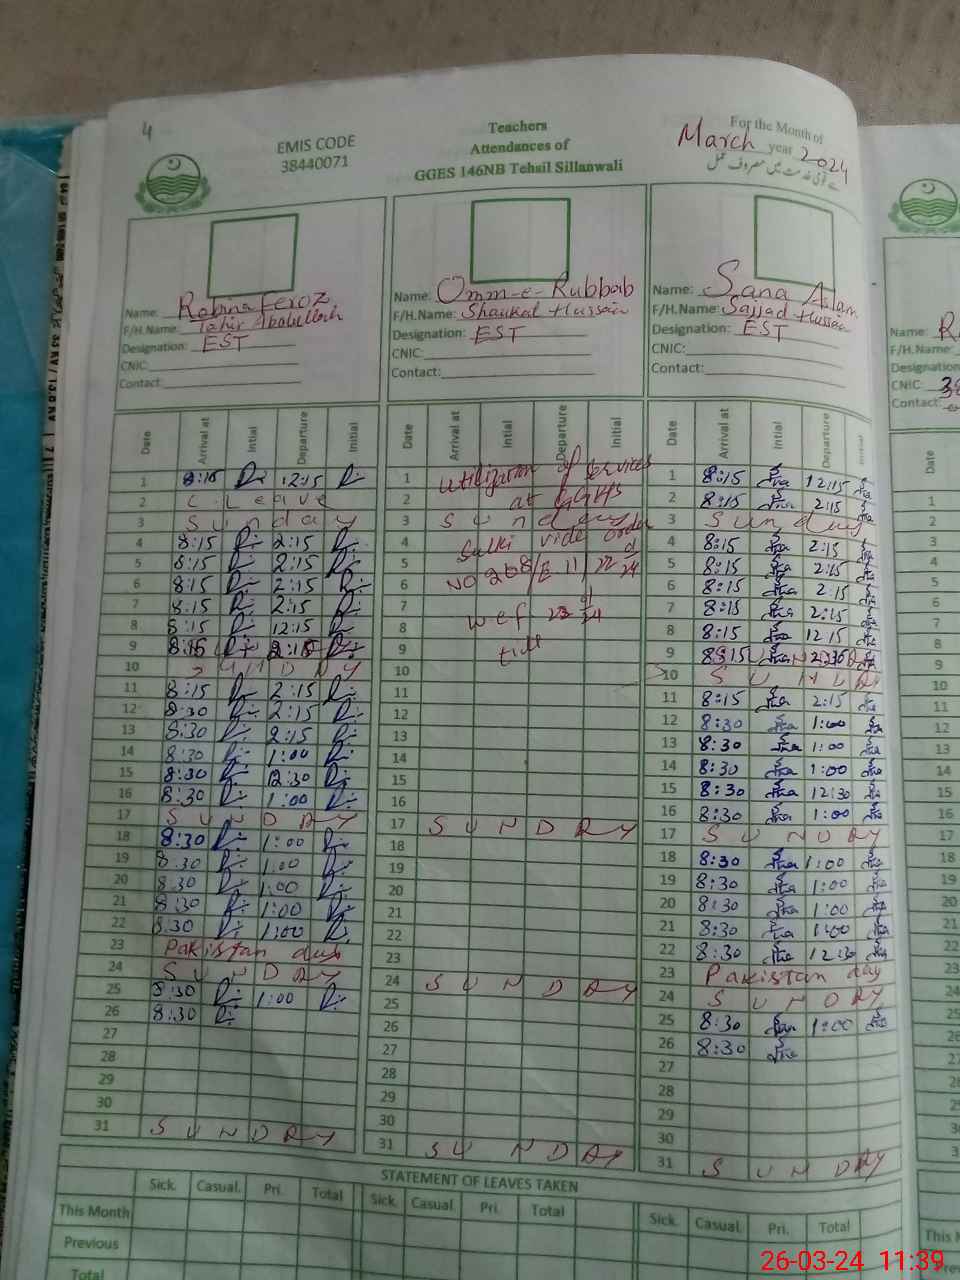 4
EMIS CODE
38440071
Teachers
Attendances of
GGES 146NB Tehsil Sillanwali
For the Month of
March year 2024
Name: Rabina Feroz
F/H.Name: Tahir Abdullah
Designation: EST
CNIC:
Contact:
Name: Omm-e-Rubbab
F/H.Name: Shaukat Hussain
Designation: EST
CNIC:
Contact:
Name: Sana Aslam
F/H.Name: Sajjad Hussain
Designation: EST
CNIC:
Contact:
Name: R
F/H.Name:
Designation
CNIC: 38
Contact:
Date Arrival at Intial Departure Initial
1 8:15 12:15
2 C. Leave
3 Sunday
4 8:15 2:15
5 8:15 2:15
6 8:15 2:15
7 8:15 2:15
8 8:15 12:15
9 8:15 2:15
10 SUNDAY
11 8:15 2:15
12 8:30 2:15
13 8:30 2:15
14 8:30 1:00
15 8:30 12:30
16 8:30 1:00
17 SUNDAY
18 8:30 1:00
19 8:30 1:00
20 8:30 1:00
21 8:30 1:00
22 8:30 1:00
23 Pakistan day
24 SUNDAY
25 8:30 1:00
26 8:30
27
28
29
30
31 SUNDAY
Date Arrival at Intial Departure Initial
1 Utilization of Services
2 at GGHS
3 Sunday
4 vide order
5 NO 268/E 11/22
6
7
8 wef 23
9 till
10
11
12
13
14
15
16
17 SUNDAY
18
19
20
21
22
23
24 SUNDAY
25
26
27
28
29
30
31 SUNDAY
Date Arrival at Intial Departure Initial
1 8:15 12:15
2 8:15 2:15
3 Sunday
4 8:15 2:15
5 8:15 2:15
6 8:15 2:15
7 8:15 2:15
8 8:15 12:15
9 8:15
10 SUNDAY
11 8:15 2:15
12 8:30 1:00
13 8:30 1:00
14 8:30 1:00
15 8:30 12:30
16 8:30 1:00
17 SUNDAY
18 8:30 1:00
19 8:30 1:00
20 8:30 1:00
21 8:30 1:00
22 8:30 12:30
23 Pakistan day
24 SUNDAY
25 8:30 1:00
26 8:30
27
28
29
30
31 SUNDAY
STATEMENT OF LEAVES TAKEN
Sick. Casual. Pri. Total Sick. Casual. Pri. Total Sick. Casual. Pri. Total
This Month
Previous
Total
26-03-24 11:39